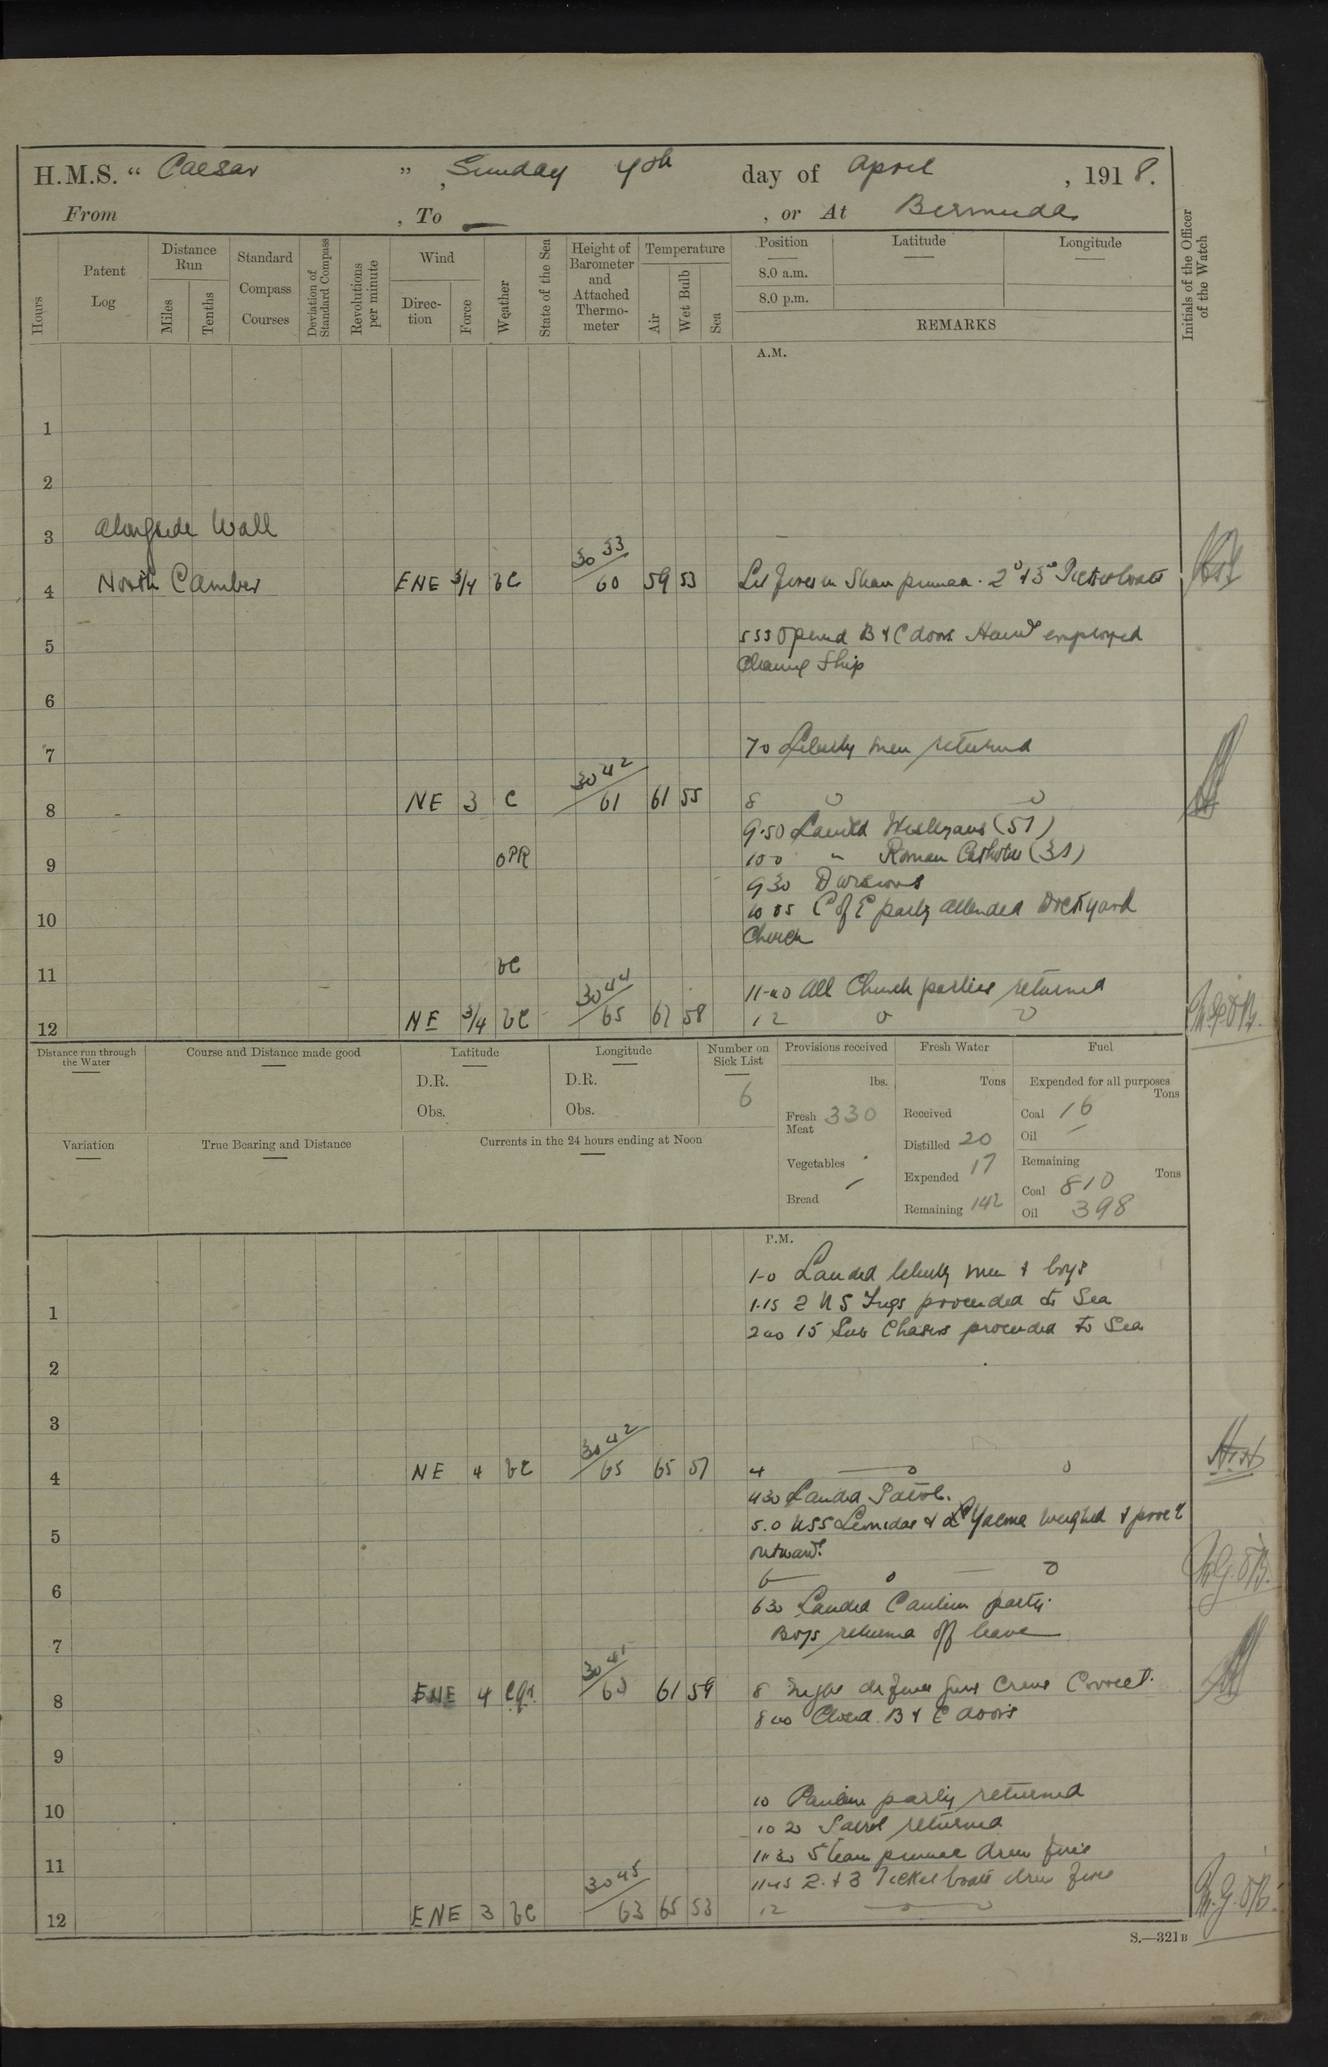 H.M.S. “ Caesar ” , Sunday 7th day of April , 1918.
From , To — , or At Bermuda
Hours
Patent Log
Distance Run
Miles
Tenths
Standard Compass Courses
Deviation of Standard Compass
Revolutions per minute
Wind
Direction
Force
Weather
State of the Sea
Height of Barometer and Attached Thermometer
Temperature
Air
Wet Bulb
Sea
Position
8.0 a.m.
8.0 p.m.
Latitude
Longitude
REMARKS
Initials of the Officer of the Watch
A.M.
1
2
3 Alongside Wall
4 North Camber ENE 3/4 bc 30 33 / 60 59 53 Lit fires in Steam pinnace. 2nd & 3rd Picketboats
5 5 55 Opened B & C doors Hands employed
Cleaning Ship
6
7 7 0 Liberty men returned
8 NE 3 C 30 42 / 61 61 55 8
9.50 Landed Wesleyans (51)
9 OPR 10 0 " Roman Catholics (31)
9 30 Divisions
10 10 05 C of E party attended Dockyard
Church
11 bc
11-40 All Church parties returned
12 NE 3/4 bc 30 44 / 65 61 58 12
Distance run through the Water
Course and Distance made good
Latitude
D.R.
Obs.
Longitude
D.R.
Obs.
Number on Sick List
6
Provisions received
lbs.
Fresh Meat 330
Vegetables
Bread
Fresh Water
Tons
Received
Distilled 20
Expended 17
Remaining 142
Fuel
Expended for all purposes
Tons
Coal 16
Oil —
Remaining
Tons
Coal 810
Oil 398
Variation
True Bearing and Distance
Currents in the 24 hours ending at Noon
P.M.
1-0 Landed liberty men & boys
1 1.15 2 US Tugs proceeded to Sea
2 40 15 Sub Chasers proceeded to Sea
2
3
4 NE 4 bc 30 42 / 65 65 57 4
4 30 Landed Patrol.
5 5.0 USS Leonidas & Yacma weighed & procd
outward.
6 6
6 30 Landed Canteen party.
7 Boys returned off leave
8 ENE 4 30 41 / 63 61 59 8 Night defence guns Crews Correct.
8 40 Closed B & C doors
9
10 10 Canteen party returned
10 20 Patrol returned
11 11 30 Steam pinnace drew fires
11 45 2 & 3 Picket boats drew fires
12 ENE 3 bc 30 45 / 63 65 53 12
S.—321B